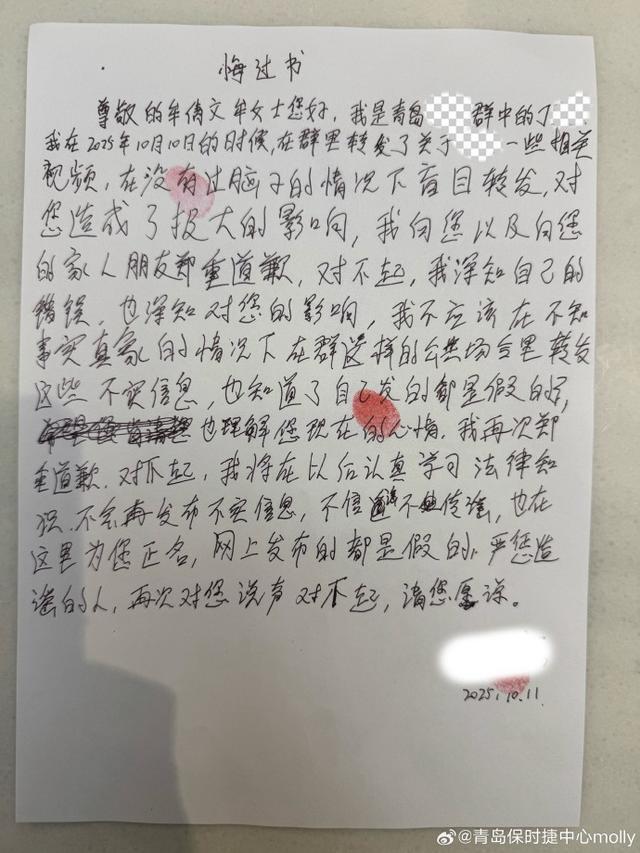 悔过书
尊敬的牟倩文牟女士您好,我是青岛 群中的丁
我在2025年10月10日的时候,在群里转发了关于 一些相关
视频,在没有过脑子的情况下盲目转发,对
您造成了极大的影响,我向您以及向您
的家人朋友郑重道歉,对不起,我深知自己的
错误,也深知对您的影响,我不应该在不知
事实真象的情况下在群这样的公共场合里转发
这些不实信息,也知道了自己发的都是假的,
也理解您现在的心情,我再次郑
重道歉,对不起,我将在以后认真学习法律知
识,不会再发布不实信息,不信谣不传谣,也在
这里为您正名,网上发布的都是假的,严惩造
谣的人,再次对您说声对不起,请您原谅。
2025.10.11
@青岛保时捷中心molly